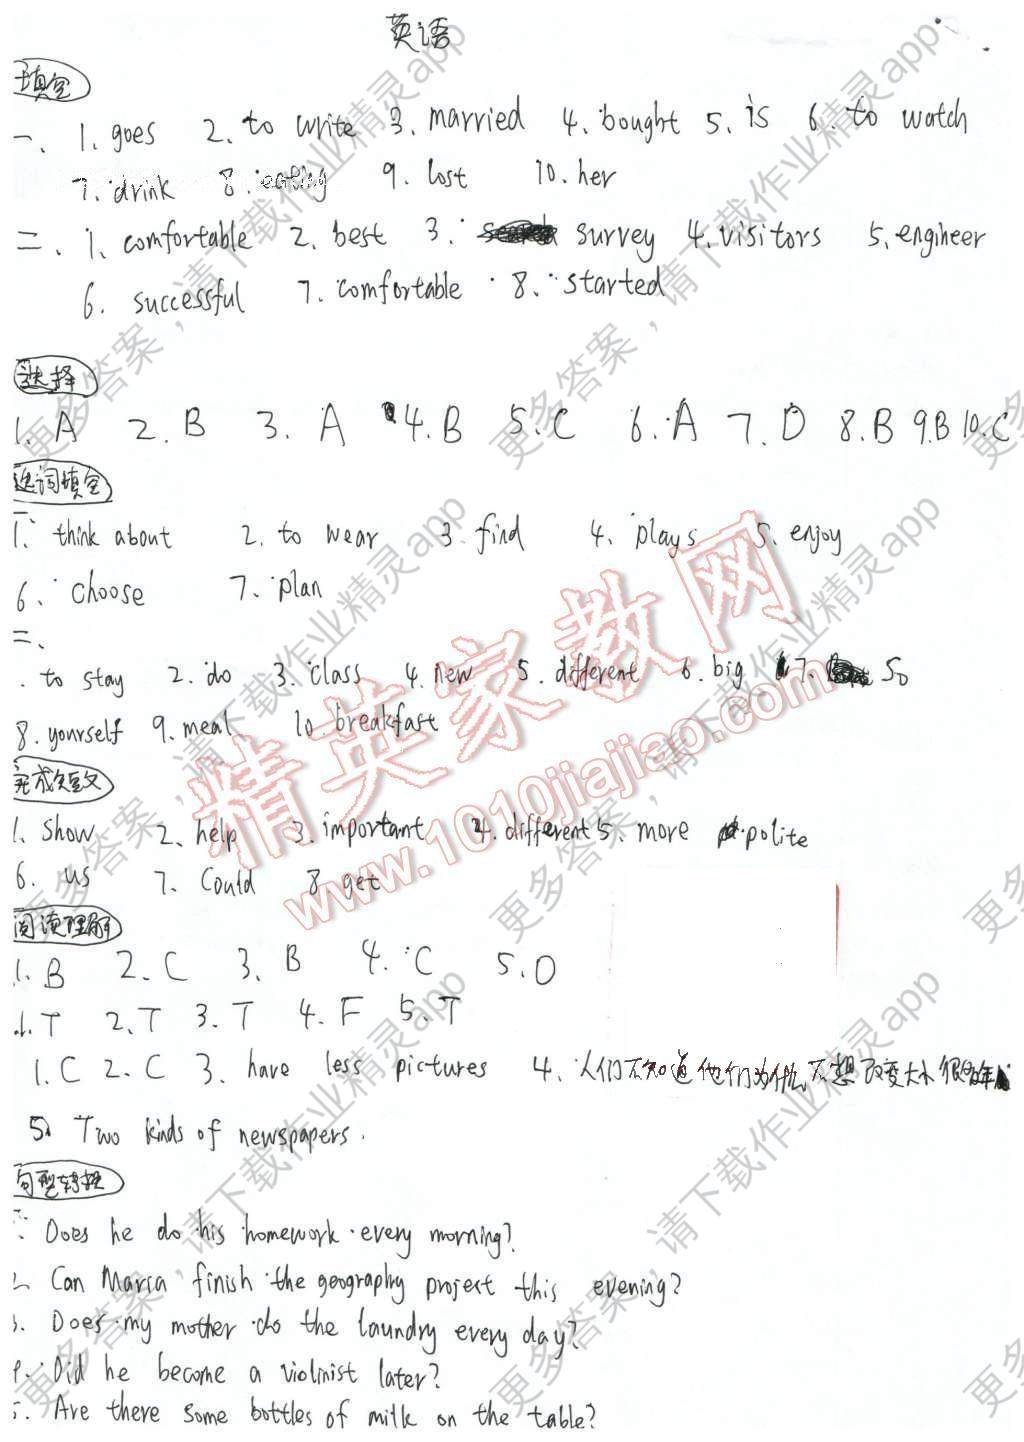 英语
填空
一、1. goes 2. to write 3. married 4. bought 5. is 6. to watch
7. drink 8. eating 9. lost 10. her
二、1. comfortable 2. best 3. survey 4. visitors 5. engineer
6. successful 7. comfortable 8. started
选择
1. A 2. B 3. A 4. B 5. C 6. A 7. D 8. B 9. B 10. C
选词填空
一、
1. think about 2. to wear 3. find 4. plays 5. enjoy
6. choose 7. plan
二、
. to stay 2. do 3. class 4. new 5. different 6. big 7. so
8. yourself 9. meal 10. breakfast
完成短文
1. show 2. help 3. important 4. different 5. more polite
6. us 7. Could 8 get
阅读理解
1. B 2. C 3. B 4. C 5. D
1. T 2. T 3. T 4. F 5. T
1. C 2. C 3. have less pictures 4. 人们不知道他们为什么不想改变大小很多年
5. Two kinds of newspapers.
句型转换
Does he do his homework every morning?
2. Can Maria finish the geography project this evening?
3. Does my mother do the laundry every day?
4. Did he become a violinist later?
5. Are there some bottles of milk on the table?
精英家教网
www.1010jiajiao.com
更多答案，请下载作业精灵app
更多答案，请下载作业精灵app
更多答案，请下载作业精灵app
更多答案，请下载作业精灵app
更多答案，请下载作业精灵app
更多答案，请下载作业精灵app